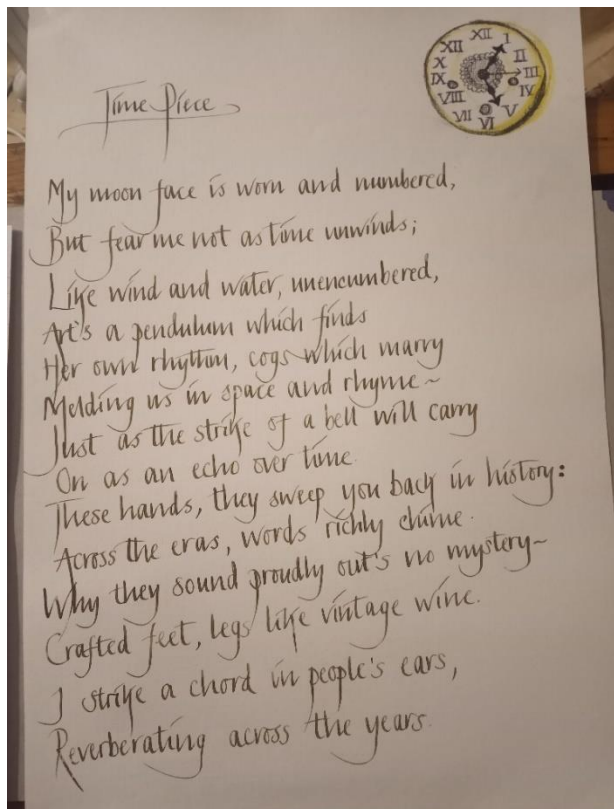 Time Piece
XII
I
II
III
IV
V
VI
VII
VIII
IX
X
XII
My moon face is worn and numbered,
But fear me not as time unwinds;
Like wind and water, unencumbered,
Art's a pendulum which finds
Her own rhythm, cogs which marry
Melding us in space and rhyme~
Just as the strike of a bell will carry
On as an echo over time.
These hands, they sweep you back in history:
Across the eras, words richly chime.
Why they sound proudly out's no mystery~
Crafted feet, legs like vintage wine.
I strike a chord in people's ears,
Reverberating across the years.